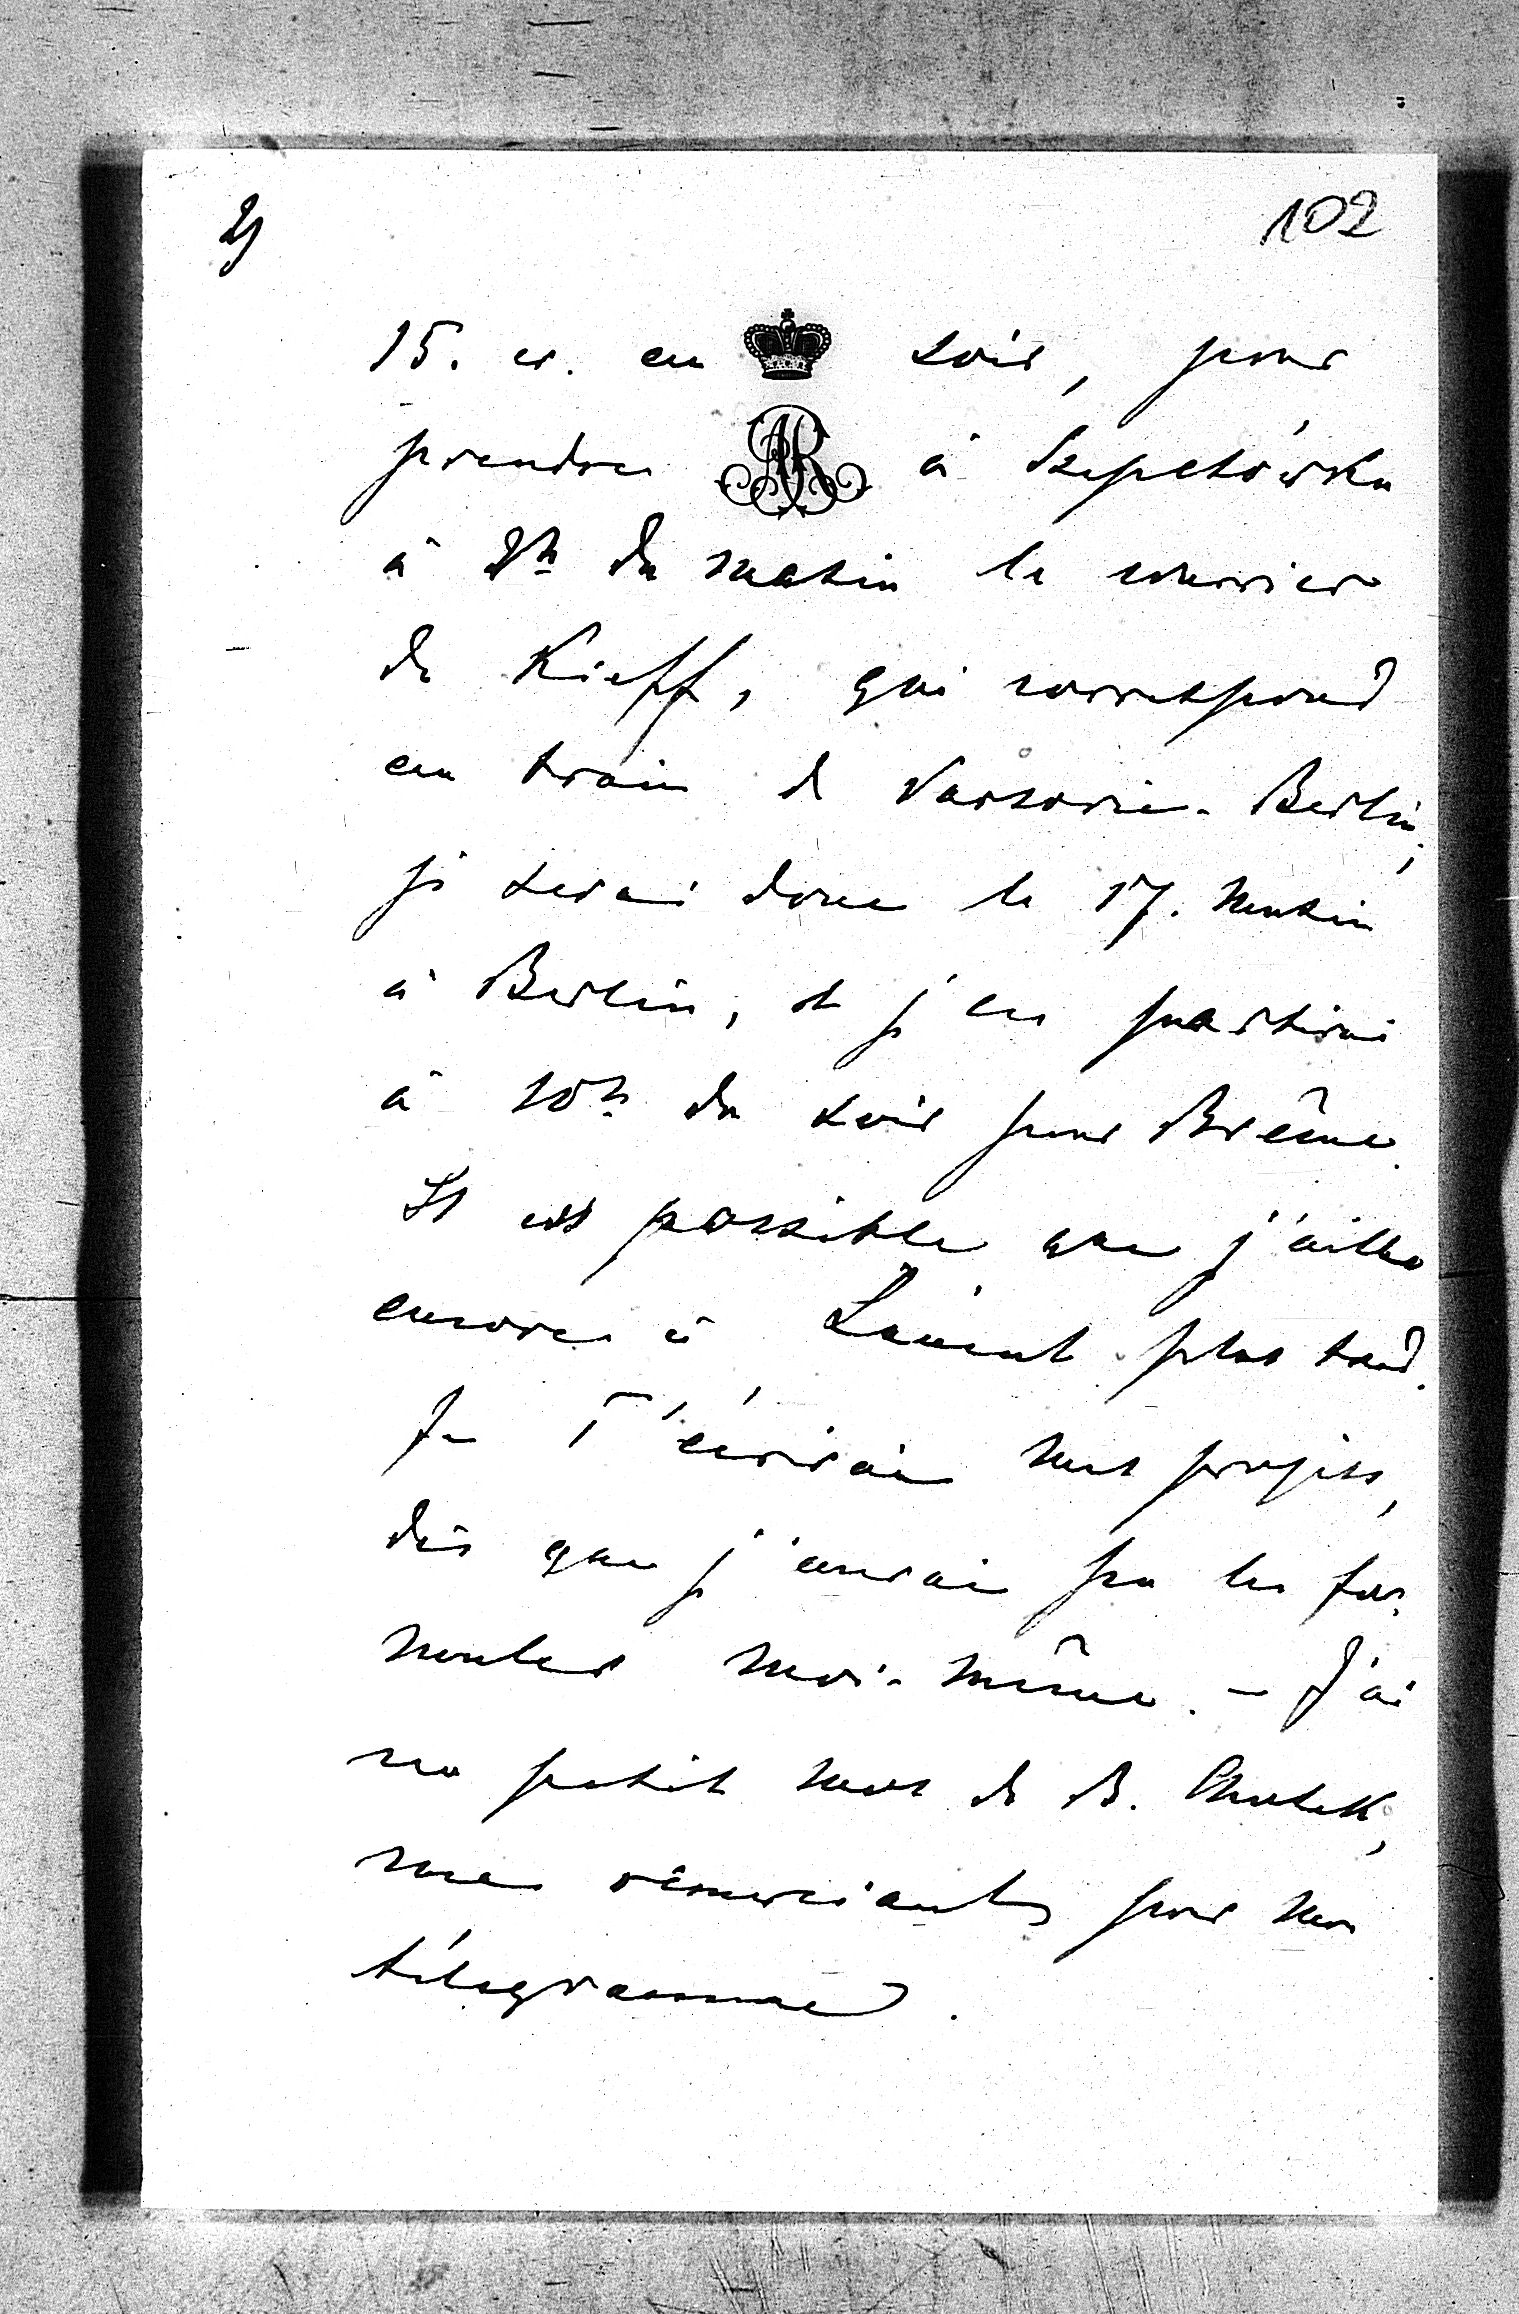 2)
102
15. cr. au soir, pour
AR
prendre à Szepetówka
à 2h du matin le courrier
de Kieff, qui correspond
au train de Varsovie-Berlin,
je serai donc le 17. matin
à Berlin, et j'en partirai
à 10h du soir pour Brême.
Il est possible que j'aille
encore à Lancut plus tard.
Je T'écrirai mes projets,
dès que j'aurai pu les for-
muler moi-même. - J'ai
eu petit mot de B. Chotek,
me remerciant pour mon
télégramme.